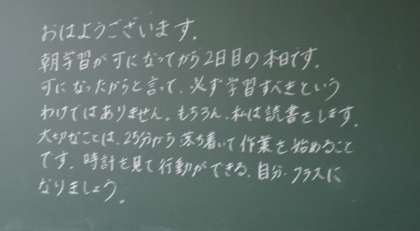 おはようございます。
朝学習が可になってから2日目の本日です。
可になったからと言って、必ず学習すべきという
わけではありません。もちろん、私は読書をします。
大切なことは、25分から落ち着いて作業を始めること
です。時計を見て行動ができる、自分・クラスに
なりましょう。